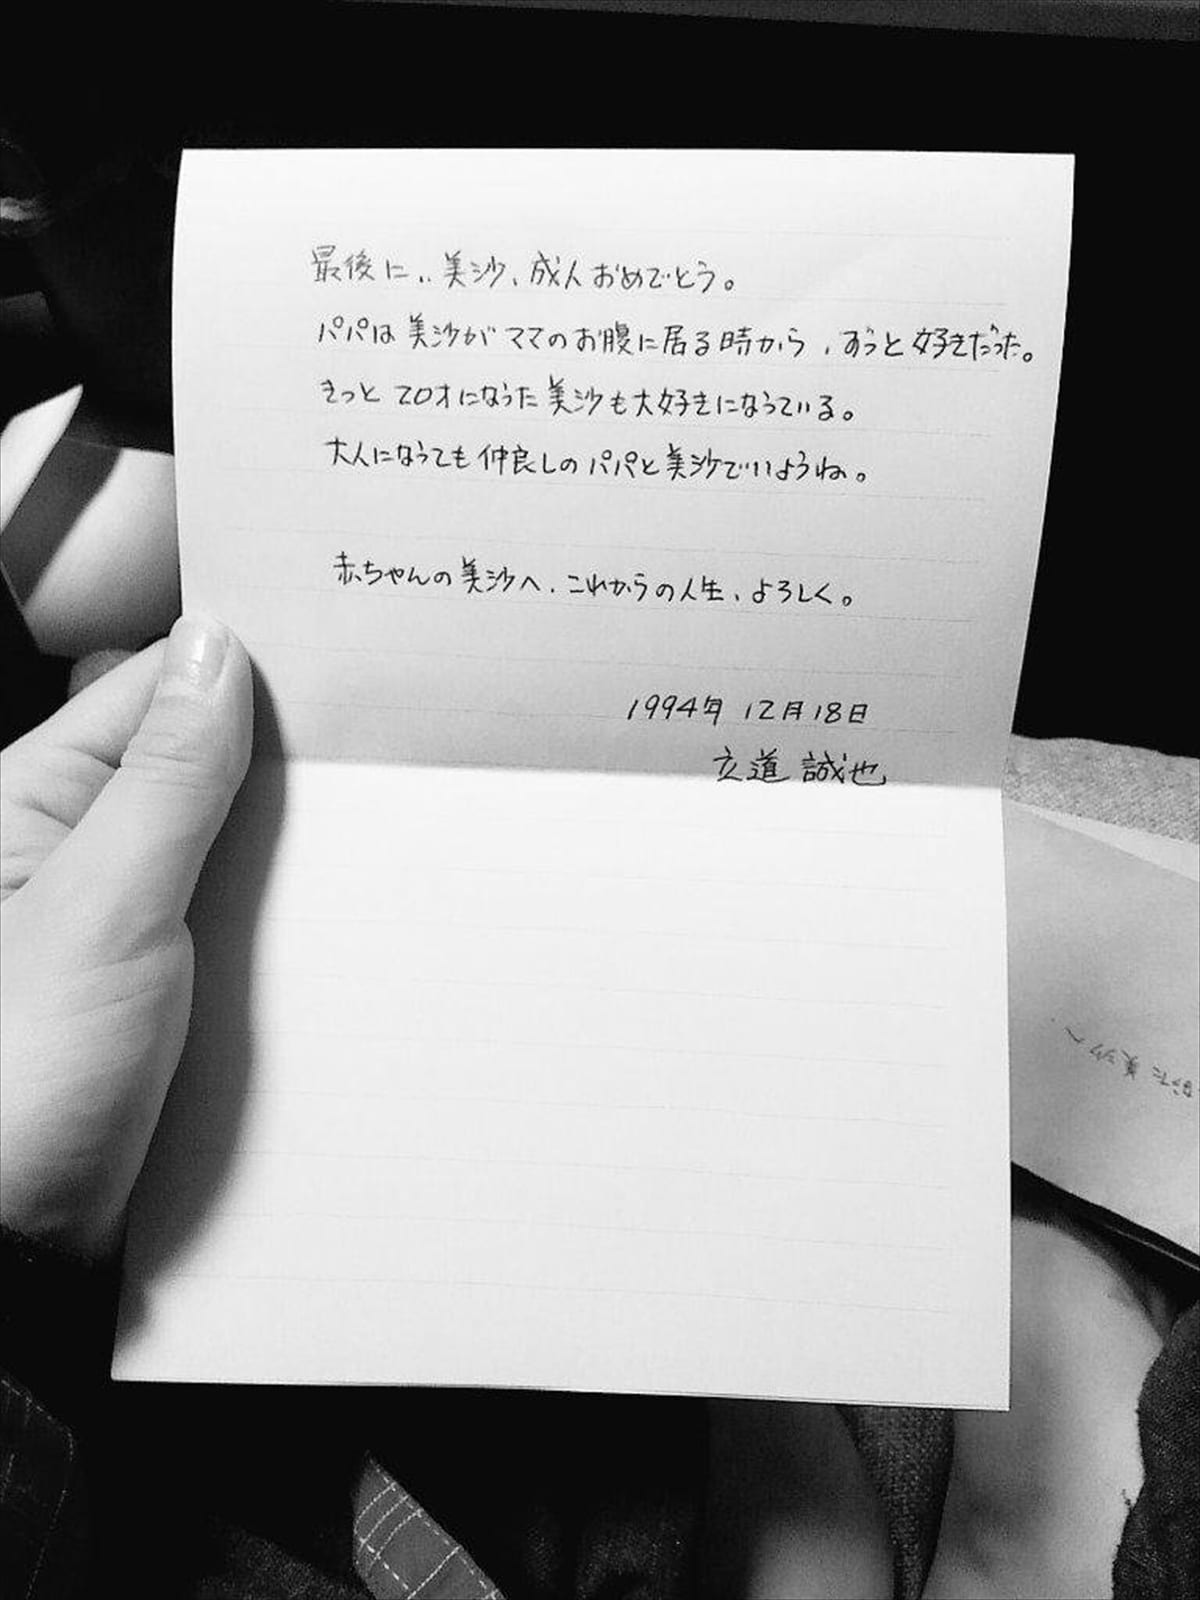 最後に‥美沙、成人おめでとう。
パパは美沙がママのお腹に居る時から、ずっと好きだった。
きっと20才になった美沙も大好きになっている。
大人になっても仲良しのパパと美沙でいようね。
赤ちゃんの美沙へ、これからの人生、よろしく。
1994年 12月18日
立道 誠也
なった美沙へ